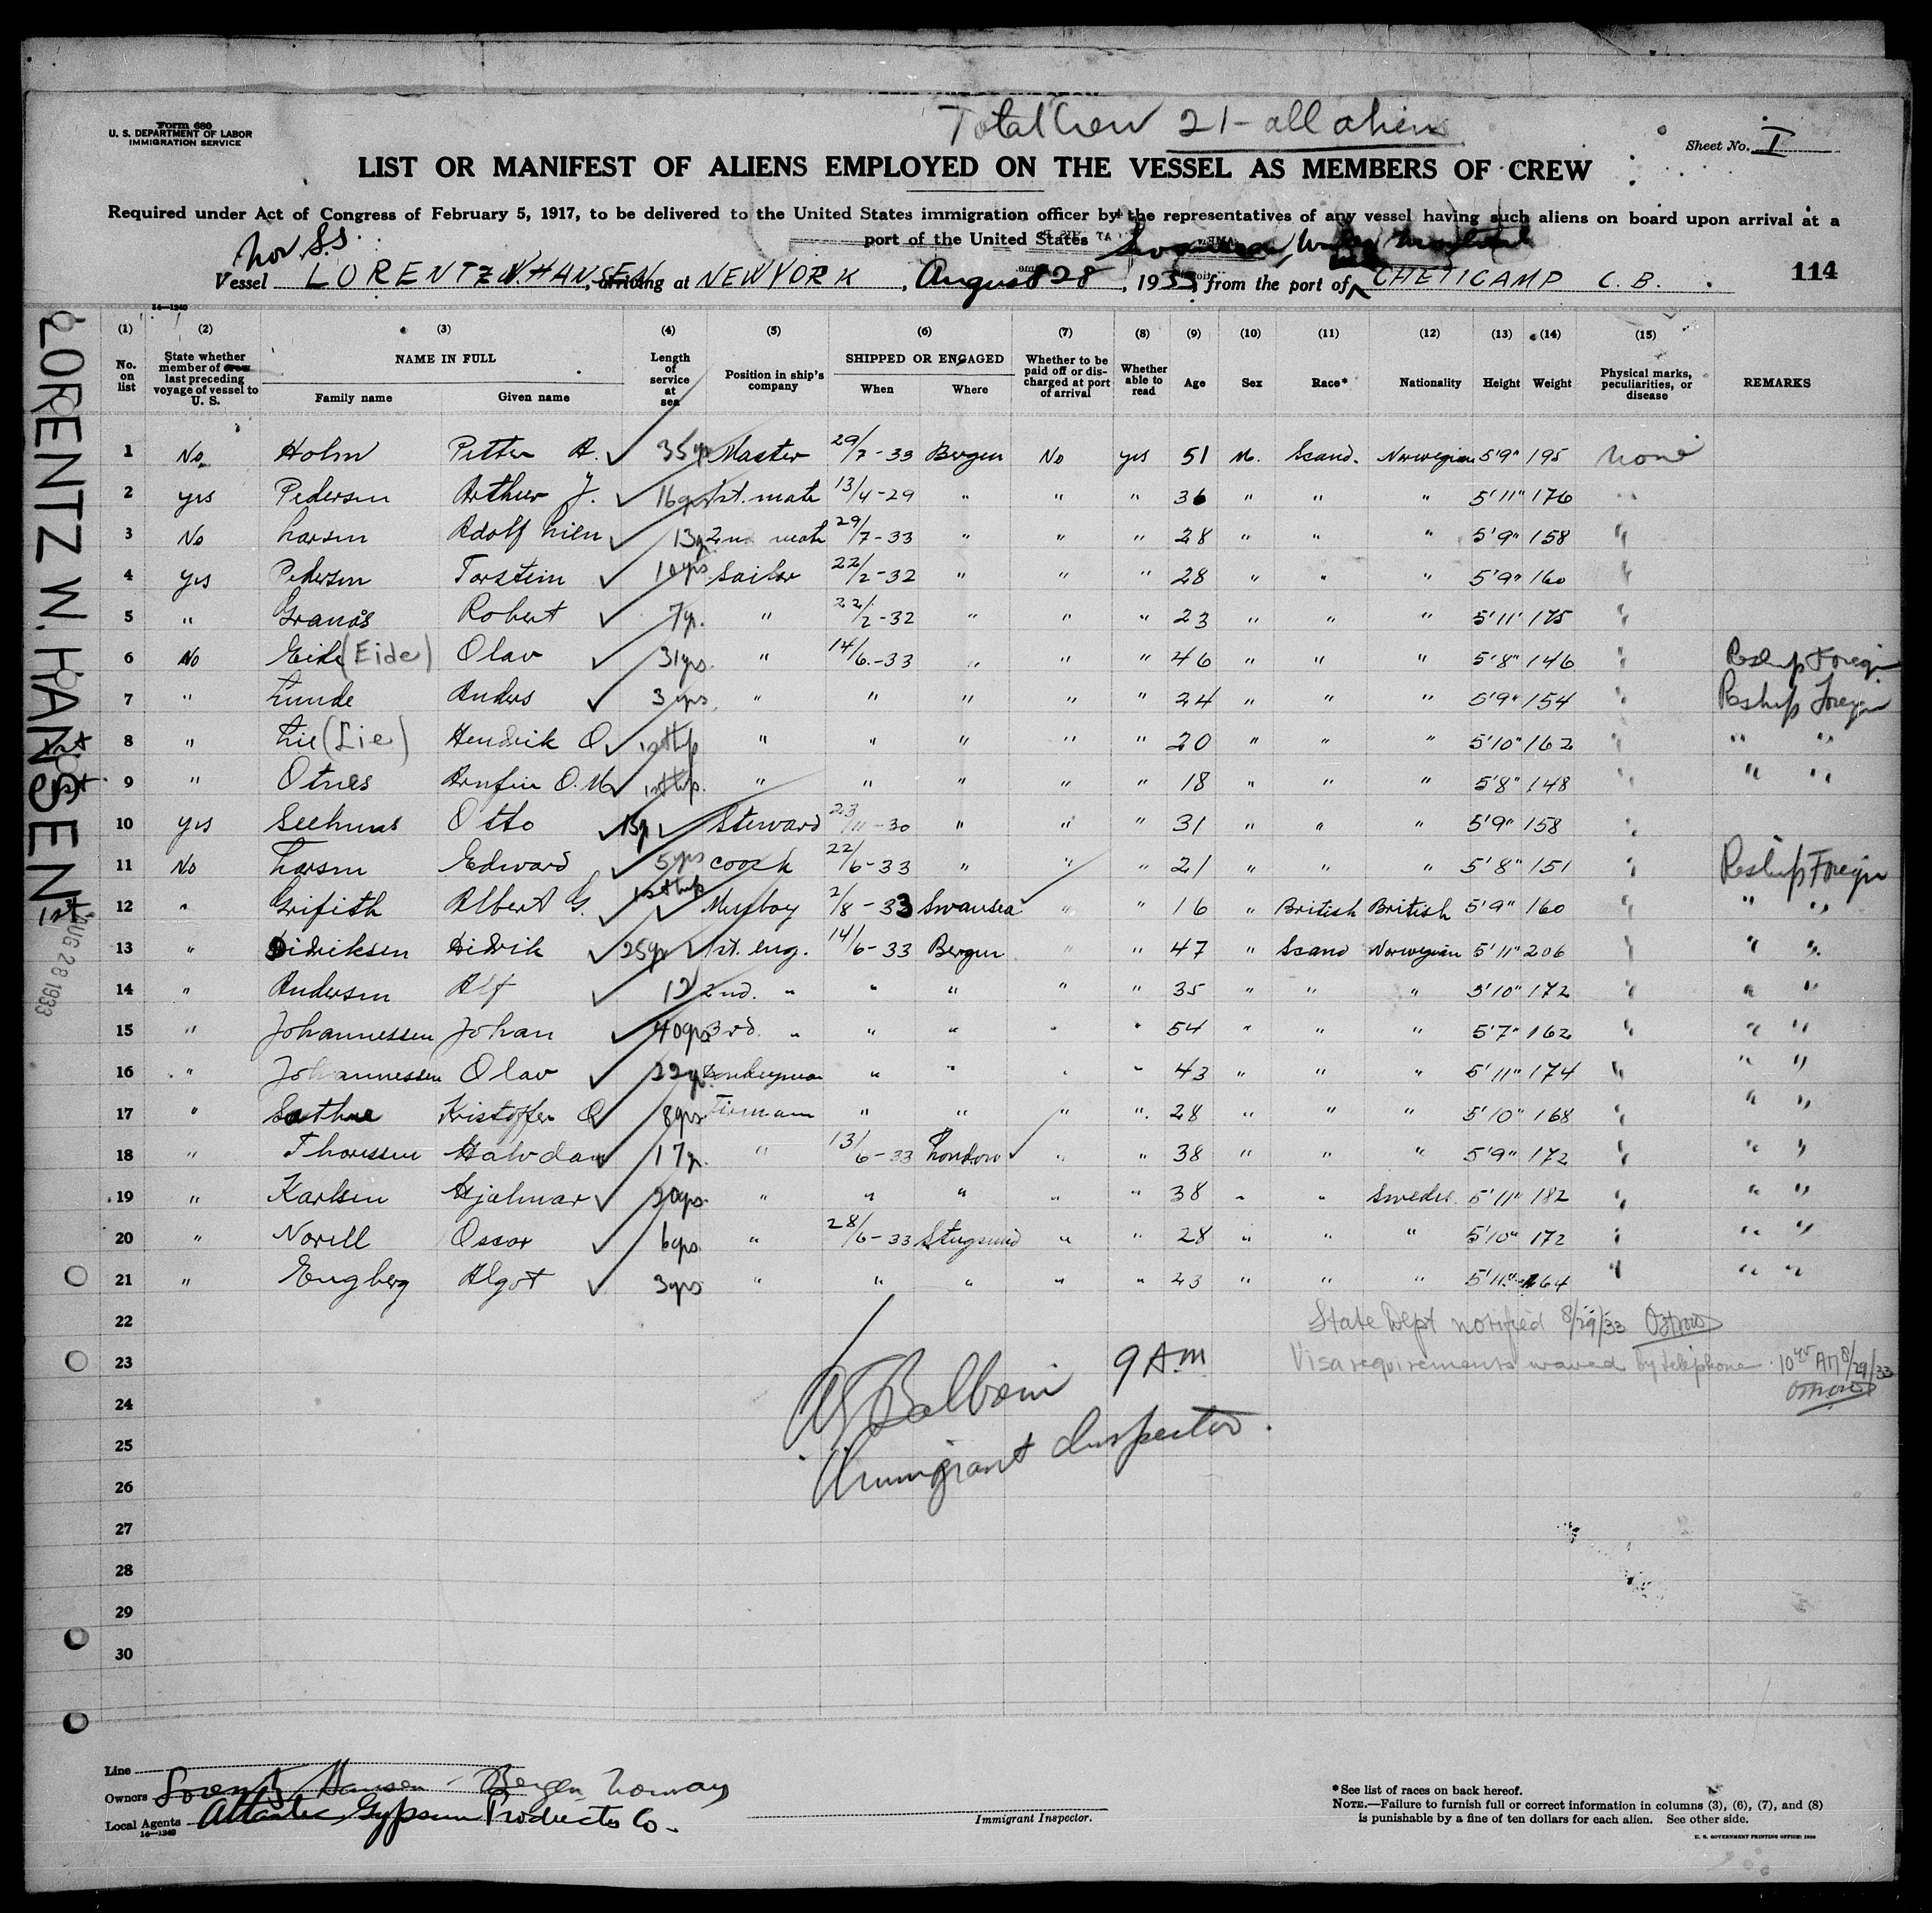 Total Crew 21 - all aliens
Form 680
U. S. DEPARTMENT OF LABOR
IMMIGRATION SERVICE
Sheet No. I
LIST OR MANIFEST OF ALIENS EMPLOYED ON THE VESSEL AS MEMBERS OF CREW
Required under Act of Congress of February 5, 1917, to be delivered to the United States immigration officer by the representatives of any vessel having such aliens on board upon arrival at a
port of the United States
Nor. S.S.
Vessel LORENTZ W. HANSEN, arriving at NEW YORK, August 28, 1933, from the port of CHETICAMP C. B.
114
14—1240
(1) (2) (3) (4) (5) (6) (7) (8) (9) (10) (11) (12) (13) (14) (15)
No. on list State whether member of crew last preceding voyage of vessel to U. S. NAME IN FULL Family name Given name Length of service at sea Position in ship's company SHIPPED OR ENGAGED When Where Whether to be paid off or discharged at port of arrival Whether able to read Age Sex Race* Nationality Height Weight Physical marks, peculiarities, or disease REMARKS
1 No Holm Petter A. 35 yrs Master 29/7-33 Bergen No yes 51 M. Scand. Norwegian 5'9" 195 None
2 yes Pedersen Arthur J. 16 yrs 1st. mate 13/4-29 " " " 36 " " " 5'11" 176 "
3 No Larsen Adolf Lien 13 y. 2nd mate 29/7-33 " " " 28 " " " 5'9" 158 "
4 yes Pedersen Torstein 10 yrs Sailor 22/2-32 " " " 28 " " " 5'9" 160 "
5 " Granås Robert 7 y. " 22/2-32 " " " 23 " " " 5'11" 175 "
6 No Eide (Eide) Olav 31 yrs. " 14/6.-33 " " " 46 " " " 5'8" 146 " Reship Foreign
7 " Lunde Anders 3 yrs. " " " " " 24 " " " 5'9" 154 " Reship Foreign
8 " Lie (Lie) Hendrik O. 1st trip " " " " " 20 " " " 5'10" 162 " " "
9 " Otnes Arnfin O. M. 1st trip. " " " " " 18 " " " 5'8" 148 " " "
10 yes Seehuus Otto Steward 23/11-30 " " " 31 " " " 5'9" 158 "
11 No Larsen Edward 5 yrs coock 22/6-33 " " " 21 " " " 5'8" 151 " Reship Foreign
12 " Grifith Albert G. 1st trip Messboy 2/8-33 Swansea " " 16 " British British 5'9" 160 " " "
13 " Didriksen Didrik 25 yr 1st. eng. 14/6-33 Bergen " " 47 " Scand Norwegian 5'11" 206 " " "
14 " Andersen Alf 12 2nd. " " " " " 35 " " " 5'10" 172 " " "
15 " Johannessen Johan 40 yrs 3rd. " " " " " 54 " " " 5'7" 162 " " "
16 " Johannessen Olav 22 y. Donkeyman " " " " 43 " " " 5'11" 174 " " "
17 " Sæthre Kristoffer O 8 yrs. Firman " " " " 28 " " " 5'10" 168 " " "
18 " Thoressen Halvdan 17 y. " 13/6-33 London " " 38 " " " 5'9" 172 " " "
19 " Karlsen Hjalmar 20 yrs. " " " " " 38 " " Swedes. 5'11" 182 " " "
20 " Norell Oscar 6 yrs. " 28/6-33 Stugsund " " 28 " " " 5'10" 172 " " "
21 " Engberg Algot 3 yrs " " " " " 23 " " " 5'11" 164 " " "
22 State Dept notified 8/29/33
23 Visa requirements waved by telephone 10 45 AM 8/29/33
9 AM
24
25 Immigrant Inspector.
26
27
28
29
30
LORENTZ W. HANSEN
AUG 28 1933
Line
Owners Lorentz Hansen - Bergen Norway
Local Agents Atlantic Gypsum Products Co.
14—1240
Immigrant Inspector.
*See list of races on back hereof.
NOTE.—Failure to furnish full or correct information in columns (3), (6), (7), and (8)
is punishable by a fine of ten dollars for each alien. See other side.
U. S. GOVERNMENT PRINTING OFFICE: 1929